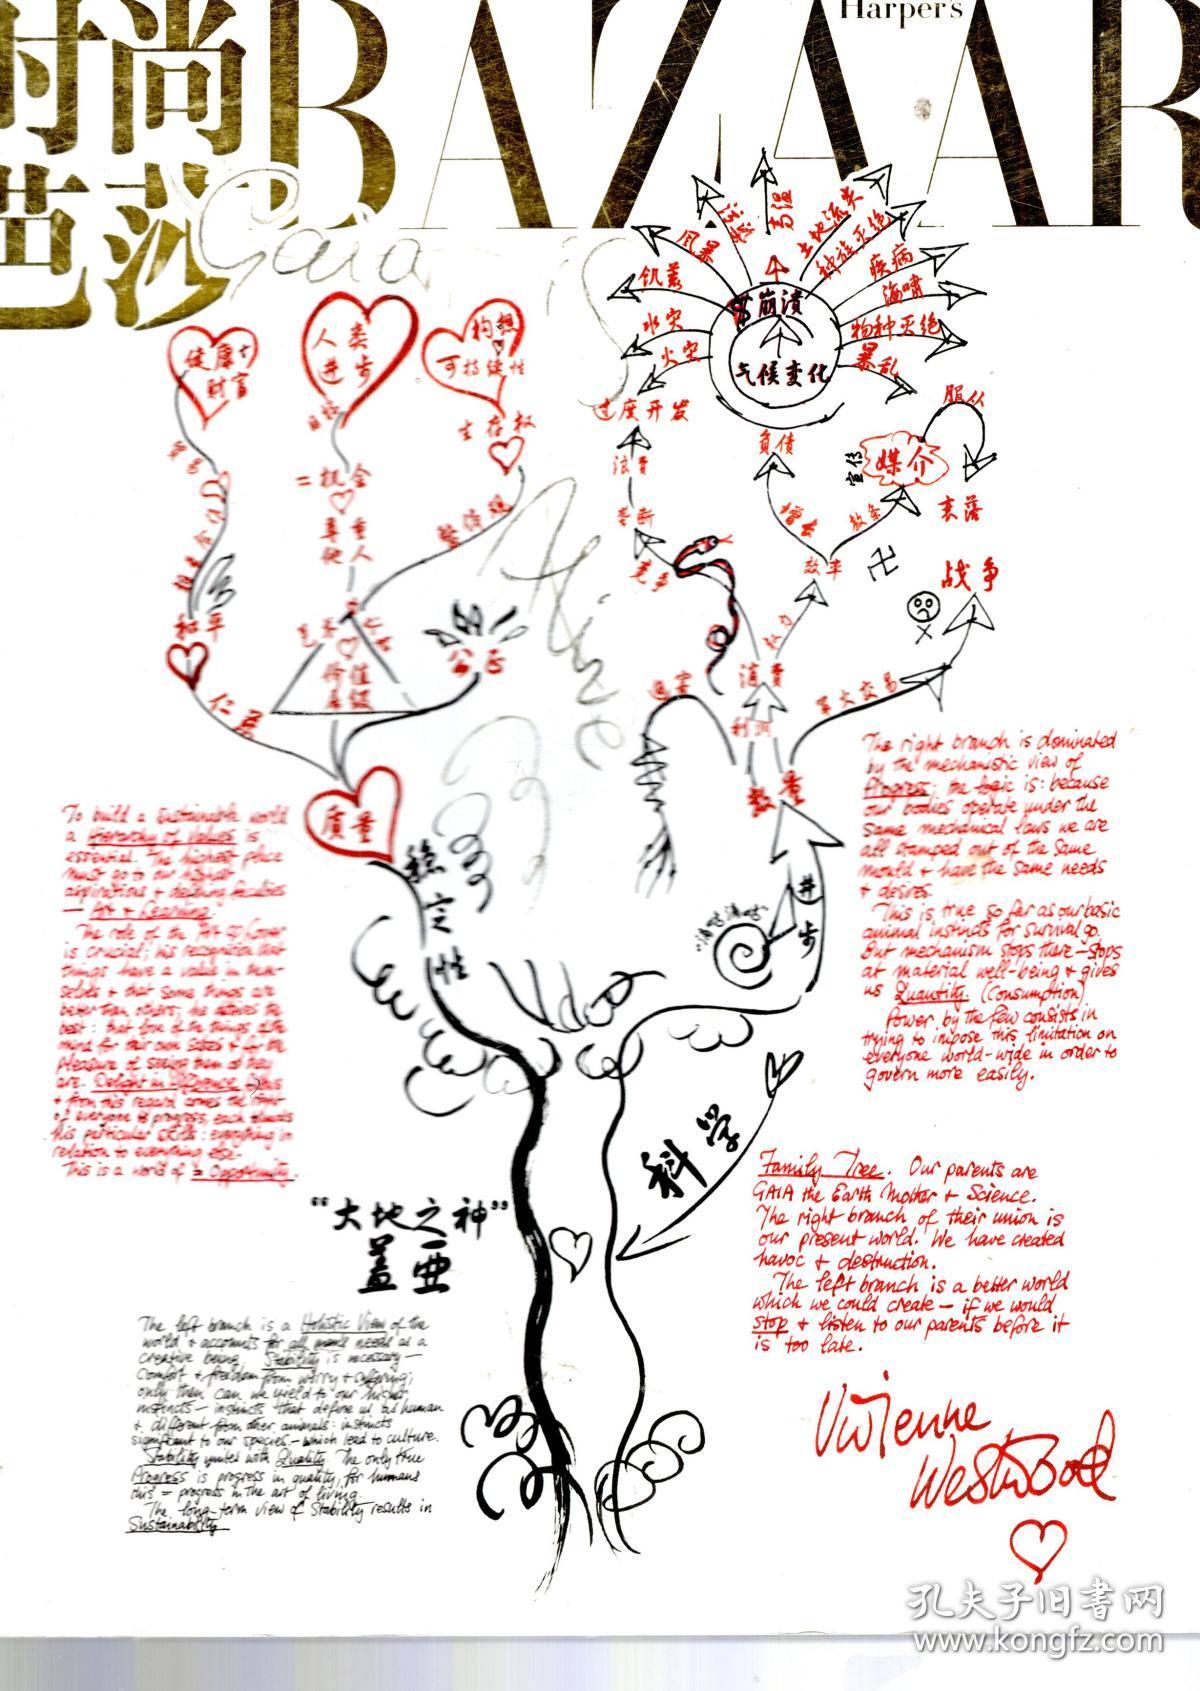 时尚
芭莎
Harper's
BAZAAR
Gaia
健康+
财富
人类
进步
构想
可持续性
生存权
二
机会
尊重
他人
和平
仁
公正
价值
质量
稳
定
性
气候变化
崩溃
火灾
水灾
饥荒
风暴
污染
高温
土地流失
种族灭绝
疾病
海啸
物种灭绝
暴乱
过度开发
浪费
垄断
竞争
负债
增长
效率
权力
消费
利润
数量
军火交易
战争
宣传
媒介
服从
衰落
进
步
科学
"大地之神"
盖亚
To build a sustainable world
a Hierarchy of Values is
essential. The highest place
must go to our highest
aspirations + defining faculties
— Art + Learning.
The role of the Art Lover
is crucial; his recognition that
things have a value in them-
selves + that some things are
better than others; he desires the
best: that love of the things of the
mind for their own sakes + for the
pleasure of seeing them as they
are. Delight in difference
+ from this regard comes the right
of everyone to progress, each towards
his particular skills: everything in
relation to everything else.
This is a world of = Opportunity.
The right branch is dominated
by the mechanistic view of
Progress; the logic is: because
our bodies operate under the
same mechanical laws we are
all stamped out of the same
mould + have the same needs
+ desires.
This is true so far as our basic
animal instincts for survival go.
But mechanism stops there – stops
at material well-being + gives
us Quantity. (Consumption)
Power by the few consists in
trying to impose this limitation on
everyone world-wide in order to
govern more easily.
Family Tree. Our parents are
GAIA the Earth Mother + Science.
The right branch of their union is
our present world. We have created
havoc + destruction.
The left branch is a better world
which we could create – if we would
stop + listen to our parents before it
is too late.
The left branch is a Holistic View of the
world + accounts for all man's needs as a
creative being. Stability is necessary –
comfort + freedom from worry + suffering;
only then can we yield to our higher
instincts – instincts that define us as human
+ different from other animals: instincts
significant to our species – which lead to culture.
Stability united with Quality. The only true
Progress is progress in quality, for humans
this = progress in the art of living.
The long-term view of Stability results in
Sustainability
Vivienne
Westwood
孔夫子旧书网
www.kongfz.com